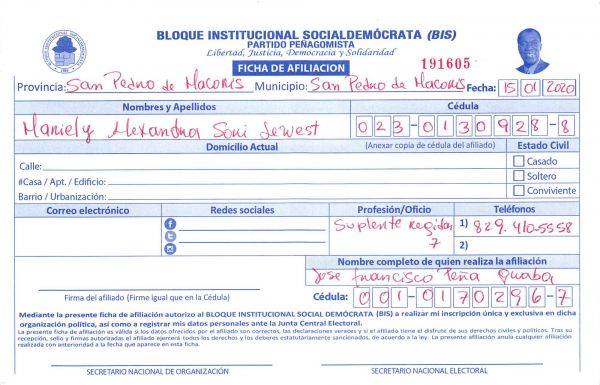 BLOQUE INSTITUCIONAL SOCIALDEMÓCRATA (BIS)
PARTIDO PEÑAGOMISTA
Libertad, Justicia, Democracia y Solidaridad
FICHA DE AFILIACION
191605
Provincia: San Pedro de Macoris Municipio: San Pedro de Macoris Fecha: 15 01 2020
Nombres y Apellidos Cédula
Mariely Alexandra Soni Jewest 023-0130928-8
Domicilio Actual (Anexar copia de cédula del afiliado) Estado Civil
Calle: Casado
#Casa / Apt. / Edificio: Soltero
Barrio / Urbanización: Conviviente
Correo electrónico Redes sociales Profesión/Oficio Teléfonos
Suplente Regidor 1) 829-410-5558
7 2)
Nombre completo de quien realiza la afiliación
Jose Francisco Peña Guaba
Firma del afiliado (Firme igual que en la Cédula) Cédula: 001-0170296-7
Mediante la presente ficha de afiliación autorizo al BLOQUE INSTITUCIONAL SOCIAL DEMÓCRATA (BIS) a realizar mi inscripción única y exclusiva en dicha
organización política, así como a registrar mis datos personales ante la Junta Central Electoral.
La presente ficha de afiliación es válida si los datos ofrecidos por el afiliado son correctos, las declaraciones veraces y si el afiliado tiene el disfrute de sus derechos civiles y políticos. Tras su
recepción, sello y firmas autorizadas el afiliado ejercerá todos los derechos y los deberes estatutariamente sancionados, de acuerdo a la ley. La presente afiliación anula cualquier afiliación
realizada con anterioridad a la fecha que aparece en esta ficha.
SECRETARIO NACIONAL DE ORGANIZACIÓN SECRETARIO NACIONAL ELECTORAL